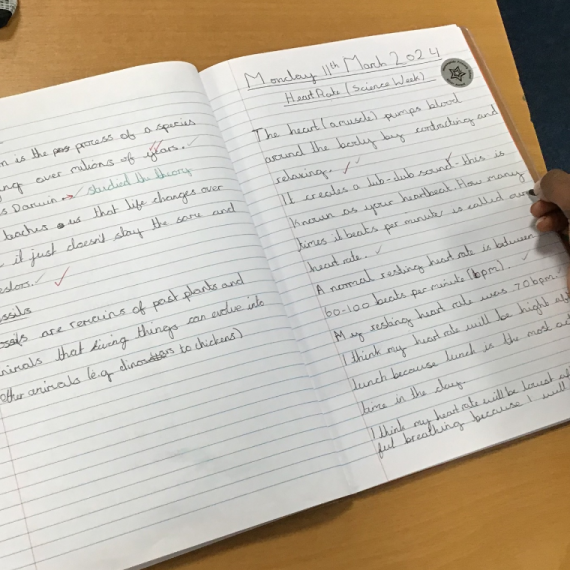 n is the process of a species
ng over millions of years.
s Darwin studied the theory
teaches us that life changes over
it just doesn't stay the same and
estors.
ssils
ssils are remains of past plants and
nimals that living things can evolve into
other animals (e.g. dinosaurs to chickens)
Monday 11th March 2024
Heart Rate (Science Week)
The heart (a muscle) pumps blood
around the body by contracting and
relaxing.
It creates a lub-dub sound this is
Known as your heartbeat. How many
times it beats per minute is called our
heart rate.
A normal resting heart rate is between
60-100 beats per minute (bpm).
My resting heart rate was 70bpm
I think my heart rate will be high
lunch because lunch is the most
time in the day.
I think my heart rate will be lowest
breathing because I will